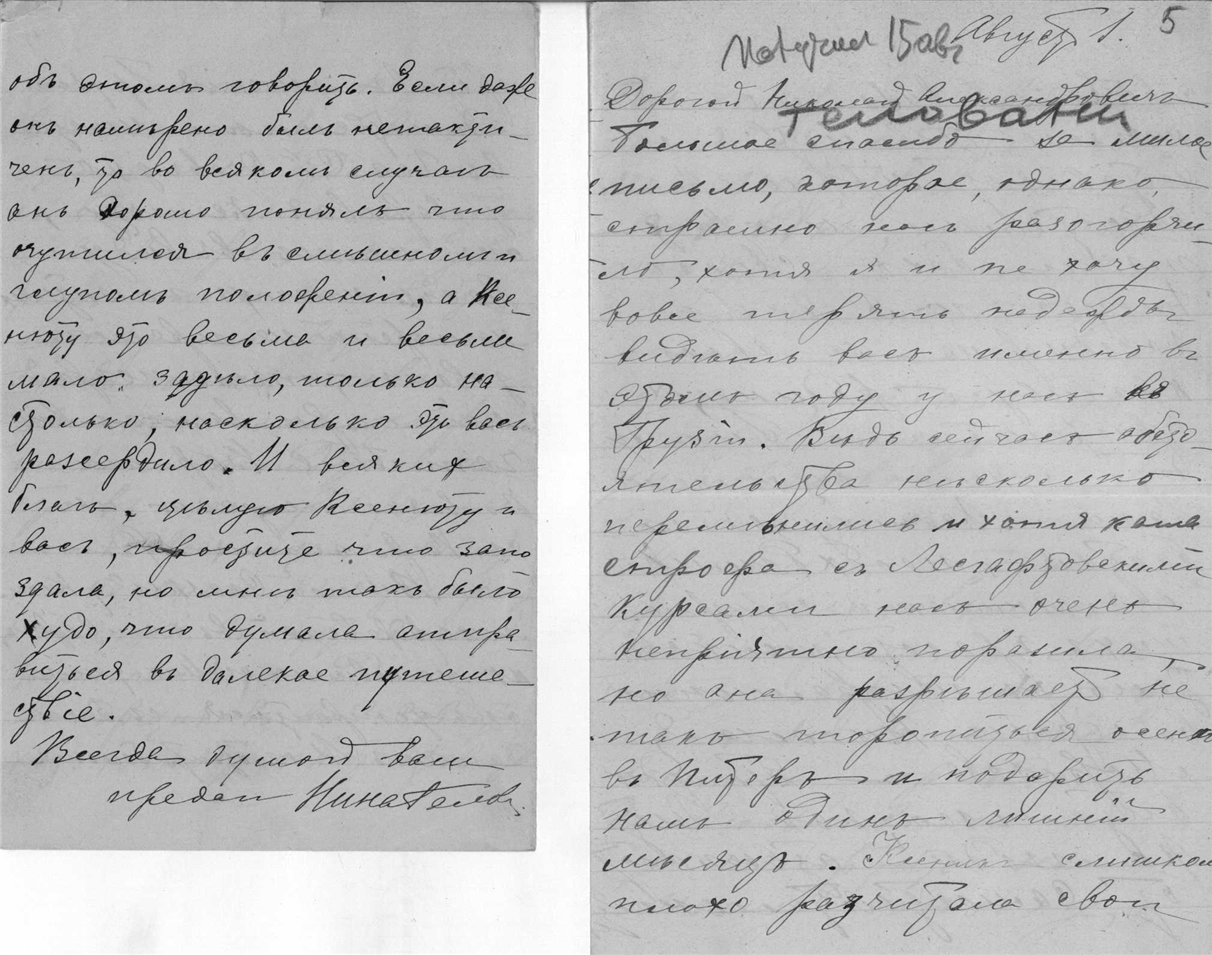 объ этомъ говорить. Если даже
онъ намѣрено былъ нетакти-
ченъ, то во всякомъ случаѣ
онъ хорошо понялъ что
очутился въ смѣшномъ и
глупомъ положеніи, а Ксе-
нюту это весьма и весьма
мало задѣло, только на-
столько, насколько это васъ
разсердило. И всякихъ
благъ, цѣлую Ксенюту и
васъ, простите что запо
здала, но мнѣ такъ было
худо, что думала отпра-
виться въ далекое путеше-
ствіе.
Всегда душой вамъ
предан Нина Гелов.
5
Получил 15 авг
Августъ 1.
Дорогой Николай Александровичъ
Геловани
Большое спасибо за милое
письмо, которое, однако,
страшно насъ разогорчи-
ло, хотя я и не хочу
вовсе терять надежды
видѣть васъ именно въ
этомъ году у насъ въ
Грузіи. Вѣдь сейчасъ обсто-
ятельства нѣсколько
перемѣнились и хотя ката
строфа съ Лесгафтовскими
Курсами насъ очень
непріятно поразила,
но она разрѣшаетъ не
такъ торопиться осенью
въ Питеръ и подарить
намъ одинъ лишній
мѣсяцъ. слишком
плохо разчитала свои